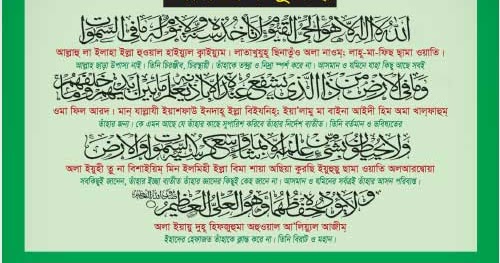 اَللهُ لَا اِلٰهَ اِلَّا هُوَ الْحَىُّ الْقَيُّوْمُ لَا تَأْخُذُهٗ سِنَةٌ وَّلَا نَوْمٌ لَهٗ مَا فِى السَّمٰوٰتِ
আল্লাহু লা ইলাহা ইল্লা হুওয়াল হাইয়্যুল ক্বাইয়্যুম। লাতাখুযুহু ছিনাতুঁও অলা নাওম; লাহু-মা-ফিছ ছামা ওয়াতি।
আল্লাহ ছাড়া উপাস্য নাই। তিনি চিরঞ্জীব, চিরস্থায়ী। তাঁহাকে তন্দ্রা ও নিদ্রা স্পর্শ করে না। আসমান ও যমিনে যাহা কিছু আছে সবই
وَمَا فِى الْاَرْضِ مَنْ ذَا الَّذِىْ يَشْفَعُ عِنْدَهٗ اِلَّا بِاِذْنِهٖ يَعْلَمُ مَا بَيْنَ اَيْدِيْهِمْ وَمَا خَلْفَهُمْ
ওমা ফিল আরদ। মান্ যাল্লাযী ইয়াশফাউ ইনদাহু ইল্লা বিইযনিহ্; ইয়া'লামু মা বাইনা আইদী হিম অমা খালফাহুম্
তাঁহার জন্য। কে এমন আছে যে তাঁহার কাছে সুপারিশ করিবে তাঁহার নির্দেশ ব্যতীত। তিনি বর্তমান ও ভবিষ্যতের
وَلَا يُحِيْطُوْنَ بِشَىْءٍ مِّنْ عِلْمِهٖ اِلَّا بِمَا شَاءَ وَسِعَ كُرْسِيُّهُ السَّمٰوٰتِ وَالْاَرْضَ
অলা ইয়ুহী তু না বিশাইয়িম্ মিন ইলমিহী ইল্লা বিমা শায়া অছিয়া কুরছি ইয়ুহুছু ছামা ওয়াতি অলআরদ্বোয়া
সবকিছুই জানেন, তাঁহার ইচ্ছা ব্যতীত তাঁহার জ্ঞানের কিছুই কেহ জানে না। আসমান ও যমিনের সর্বত্রই তাঁহার আসন পরিব্যপ্ত।
وَلَا يَئُوْدُهٗ حِفْظُهُمَا وَهُوَ الْعَلِىُّ الْعَظِيْمُ
অলা ইয়ায়ু দুহু হিফজুহুমা অহুওয়াল আ'লিয়্যুল আজীম্
ইহাদের হেফাজত তাঁহাকে ক্লান্ত করে না। তিনি বিরাট ও মহান।